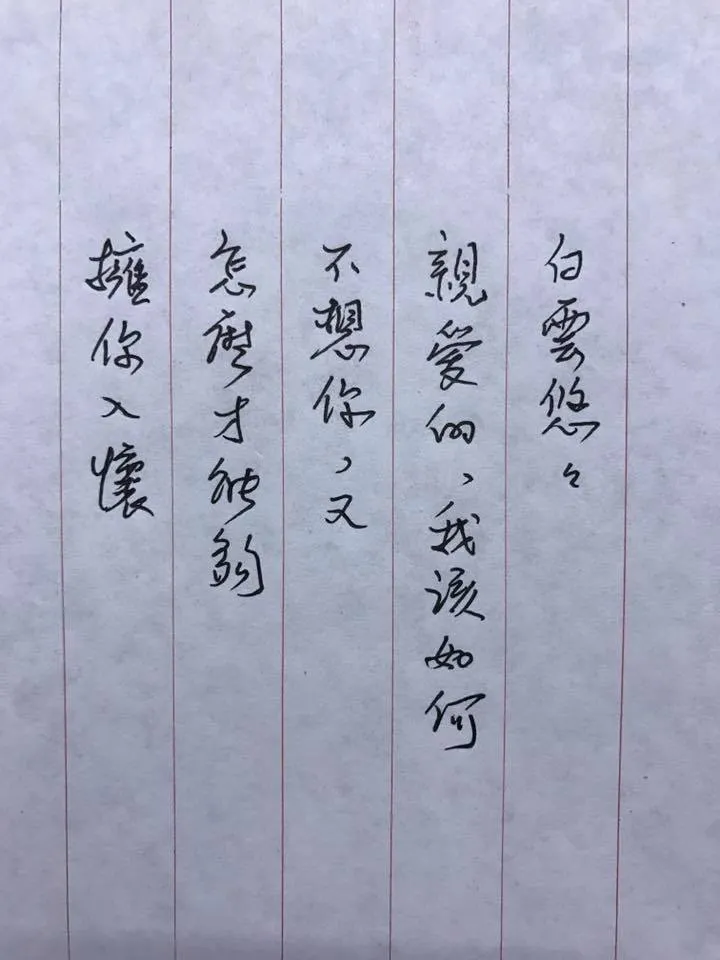 白雲悠々
親愛的，我該如何
不想你，又
怎麼才能夠
擁你入懷